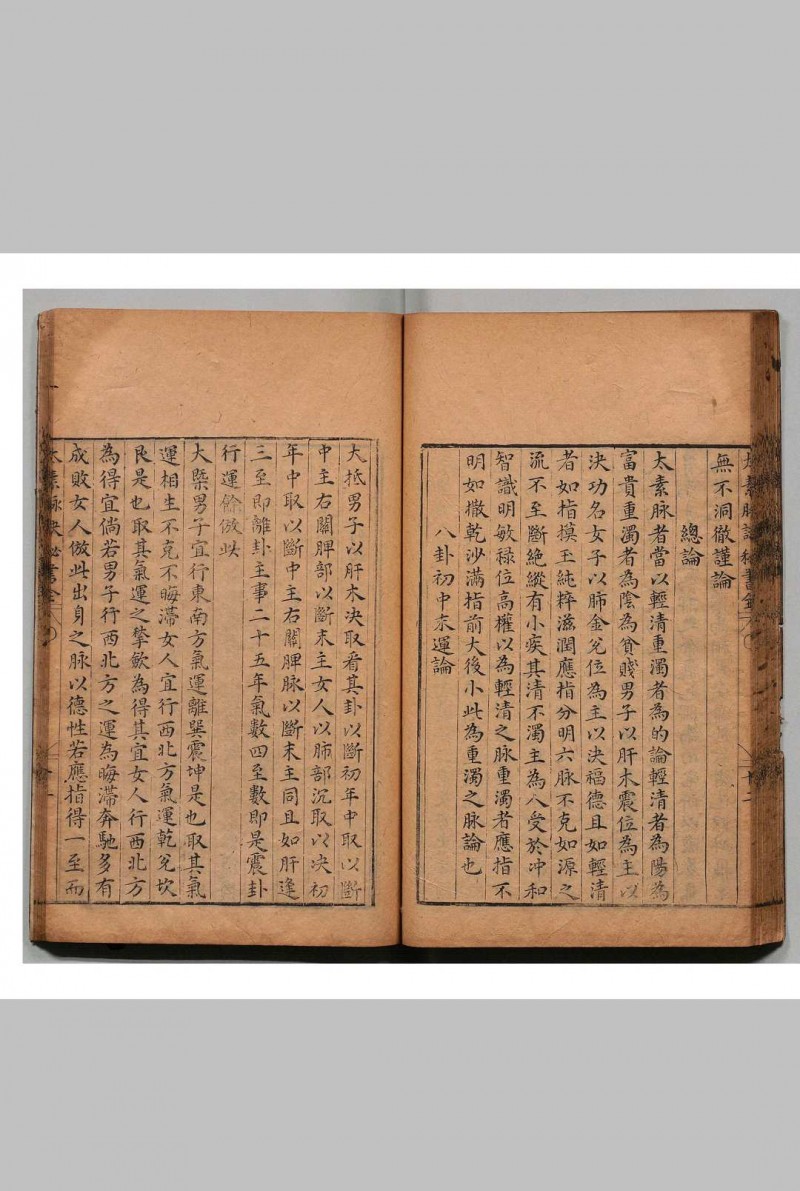 無不洞徹謹論
總論
太素脉者當以輕清重濁者為的論輕清者為陽為
富貴重濁者為陰為貧賤男子以肝木震位為主以
決功名女子以肺金兌位為主以決福德且如輕清
者如指摸玉純粹滋潤應指分明六脉不克如源之
流不至斷絶縱有小疾其清不濁主為人受於冲和
智識明敏祿位高權以為輕清之脉重濁者應指不
明如撒乾沙滿指前大後小此為重濁之脉論也
八卦初中末運論
大抵男子以肝木決取看其卦以斷初年中取以斷
中主右關脾部以斷末主女人以肺部沉取以決初
年中取以斷中主右關脾脉以斷末主同且如肝逢
三至即離卦主事二十五年氣數四至數即是震卦
行運餘倣此
大槩男子宜行東南方氣運離巽震坤是也取其氣
運相生不克不晦滯女人宜行西北方氣運乾兌坎
艮是也取其氣運之摰歛為得其宜女人行西北方
為得宜倘若男子行西北方之運為晦滯奔馳多有
成敗女人倣此出身之脉以德性若應指得一至而
太素脉決秘書全